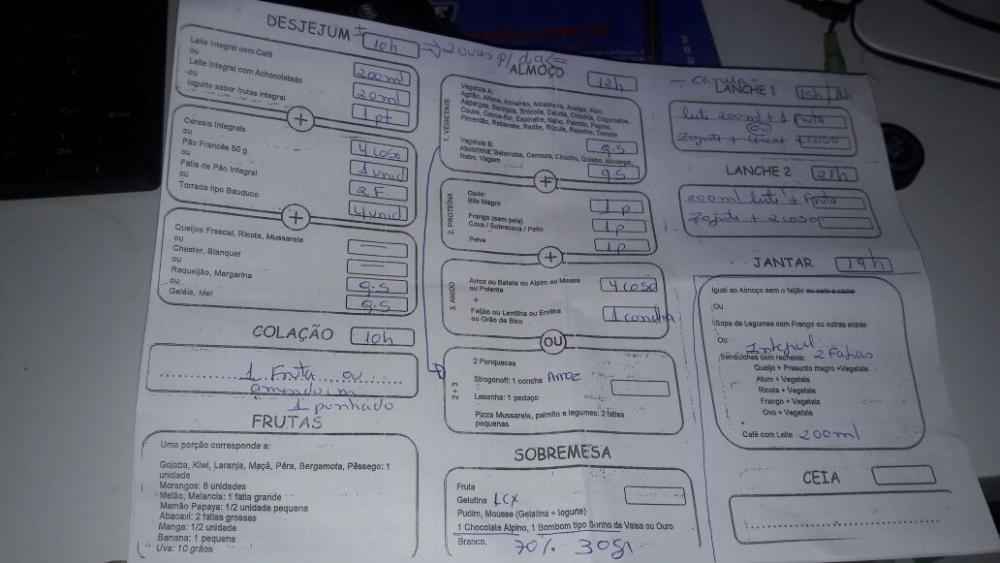 DESJEJUM ± 10h → 2 ovos p/ dia
Leite Integral com Café 200ml
ou
Leite Integral com Achocolatado 20ml
ou
Iogurte sabor frutas integral 1 pt
+
Cereais Integrais 4 cosa
ou
Pão Francês 50 g 1 unid
ou
Fatia de Pão Integral 2 F.
ou
Torrada tipo Bauduco 4 unid
+
Queijos Frescal, Ricota, Mussarela —
ou
Chester, Blanquet —
ou
Requeijão, Margarina q.s
ou
Geléia, Mel q.s
COLAÇÃO 10h
1 Fruta ou
amendoim
1 punhado
FRUTAS
Uma porção corresponde a:
Goiaba, Kiwi, Laranja, Maçã, Pêra, Bergamota, Pêssego: 1
unidade
Morangos: 8 unidades
Melão, Melancia: 1 fatia grande
Mamão Papaya: 1/2 unidade pequena
Abacaxi: 2 fatias grossas
Manga: 1/2 unidade
Banana: 1 pequena
Uva: 10 grãos
ALMOÇO 12h
1. VEGETAIS
Vegetais A:
Pimentão, Rabanete, Repolho, Rúcula, Tomate q.s
Vegetais B:
Abobrinha, Beterraba, Cenoura, Chuchu,
Nabo, Vagem q.s
+
2. PROTEÍNA
Bife Magro 1 p
Frango (sem pele)
Coxa / Sobrecoxa / Peito 1 p
Peixe 1 p
+
3. AMIDO
Arroz ou Batata ou Aipim ou Massa
ou Polenta 4 cosa
+
Feijão ou Lentilha ou Ervilha
ou Grão de Bico 1 concha
OU
2 + 3
2 Panquecas
Strogonoff: 1 concha Arroz
Lasanha: 1 pedaço
Pizza Mussarela, palmito e legumes: 2 fatias
pequenas
SOBREMESA
Fruta
Gelatina
Pudim, Mousse (Gelatina + Iogurte)
1 Chocolate Alpino, 1 Bombom tipo Sonho de Valsa ou Ouro
Branco. 70% 30g
LANCHE 1
200ml + Fruta
ou
LANCHE 2 21h
200ml + Fruta
+ 2 cosa
JANTAR 19h
Igual ao Almoço sem o feijão
ou
Sopa de Legumes com Frango ou outras
Ou Integral
Sanduíches com recheio: 2 Fatias
Queijo + Presunto magro + Vegetais
Atum + Vegetais
Ricota + Vegetais
Frango + Vegetais
Ovo + Vegetais
Café com Leite 200ml
CEIA